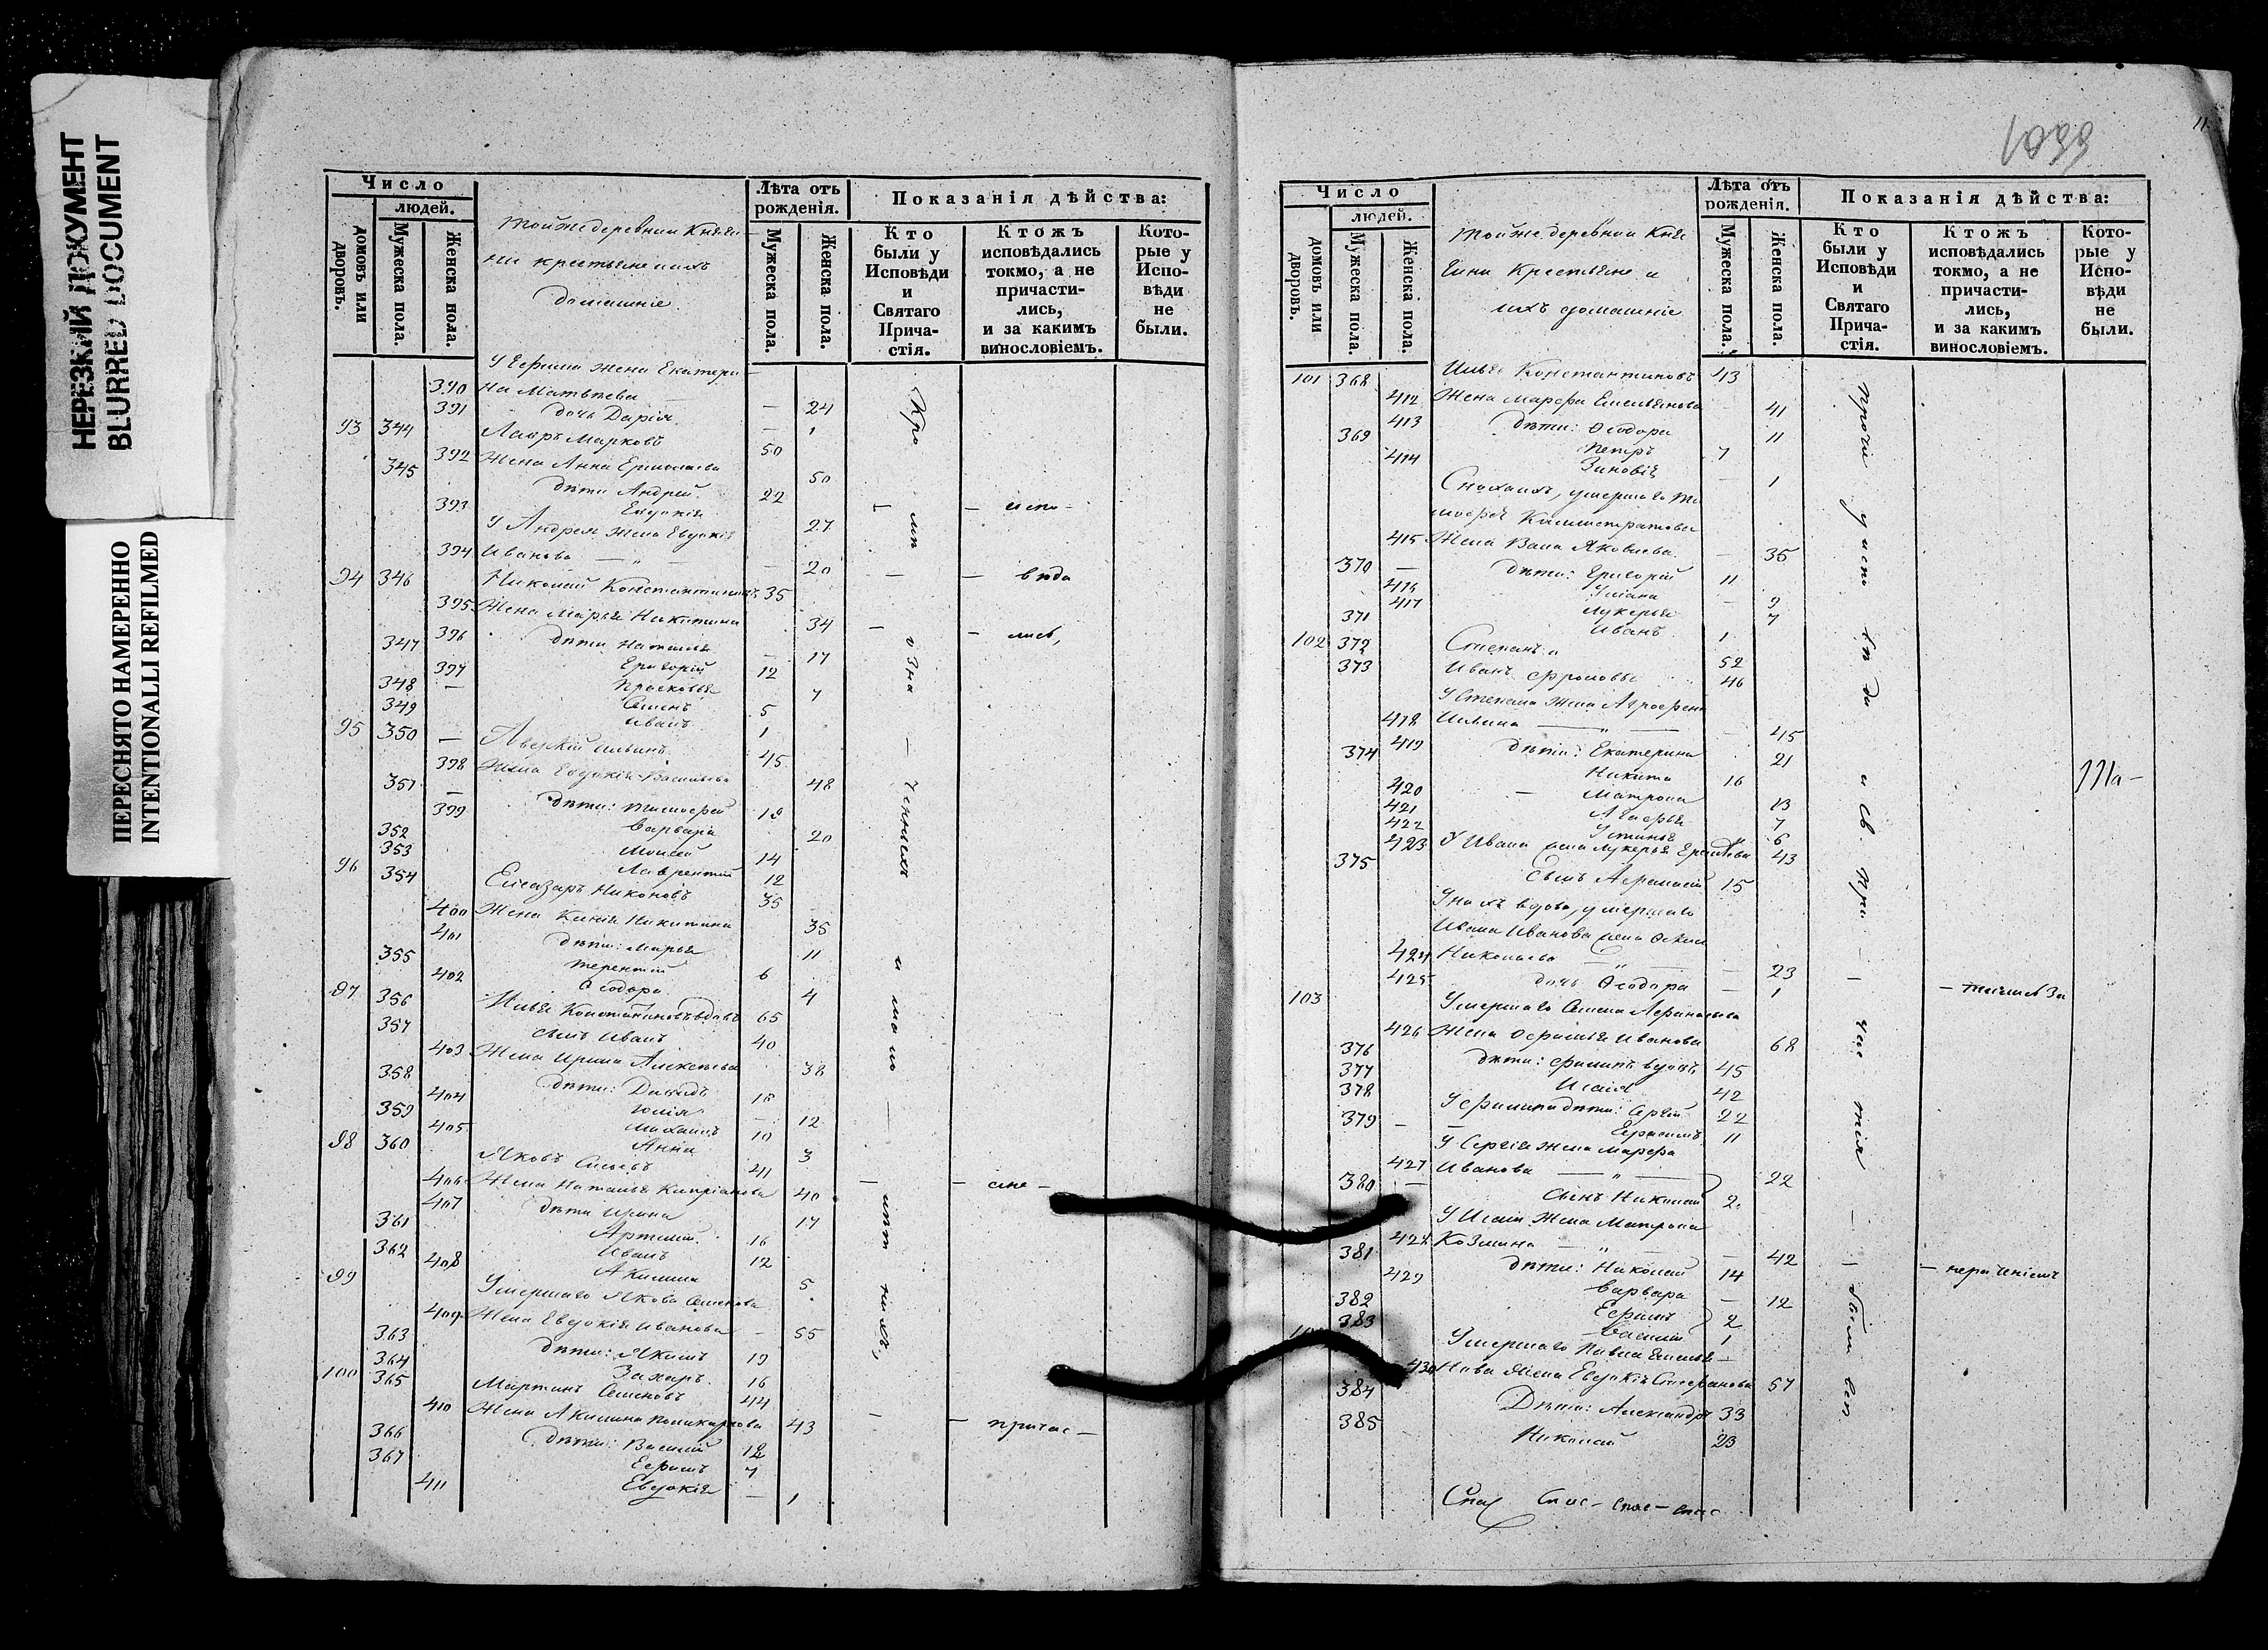 НЕРЕЗКИЙ ДОКУМЕНТ
BLURRED DOCUMENT
ПЕРЕСНЯТО НАМЕРЕННО
INTENTIONALLI REFILMED
Число
людей.
домовъ или дворовъ.
Мужеска пола.
Женска пола.
тойже деревни Княги
ни крестьяне и ихъ
домашніе
Лѣта отъ рожденія.
Мужеска пола.
Женска пола.
Показанія дѣйства:
Кто были у Исповѣди и Святаго Прича-стія.
Ктожъ исповѣдались токмо, а не причасти-лись, и за какимъ винословіемъ.
Кото-рые у Испо-вѣди не были.
У Ефрема жена Екатери
390 на Матвѣева — 24
391 дочь Дарія — 1
93 344 Лавръ Марковъ 50
392 Жена Анна Ермолаева 50
345 дѣти Андрей 22
393 Евдокія 27
У Андрея жена Евдокія
394 Иванова — 20
94 346 Николай Константиновъ 35
395 Жена Марья Никитина 34
396 дѣти Наталья — 17
347 Григорій 12
397 Прасковья 7
348 Семенъ 5
349 Иванъ 1
95 350 Аверкій Ильинъ 45
398 Жена Евдокія Васильева 48
351 дѣти: Тимофей 19
399 Варвара 20
352 Моисей 14
353 Лаврентій 12
96 354 Елеазаръ Никоновъ 35
400 Жена Ксенія Никитина 35
401 дѣти: Марья 11
355 Терентій 6
402 Ѳеодора 4
97 356 Илья Константиновъ вдовъ 65
357 сынъ Иванъ 40
403 Жена Ирина Алексѣева 38
358 дѣти: Давидъ 18
404 Юлія — 12
359 Михаилъ 10
405 Анна 3
98 360 Яковъ 41
406 Жена Наталья Кипріанова 40
407 дѣти Ирина 17
361 Артемій 16
362 Иванъ 12
408 Акилина 5
99 Умершаго Якова Семенова
409 Жена Евдокія Иванова — 55
363 дѣти: Якимъ 19
364 Захаръ 16
100 365 Мартинъ Семеновъ 44
410 Жена Акилина Поликарпова 43
366 дѣти: Василій 12
367 Ефремъ 7
411 Евдокія — 1
— испо —
— вѣда
— лись,
— а не —
— причас —
1093
11
Число
людей.
домовъ или дворовъ.
Мужеска пола.
Женска пола.
тойже деревни Кня
гини Крестьяне и
ихъ домашніе
Лѣта отъ рожденія.
Мужеска пола.
Женска пола.
Показанія дѣйства:
Кто были у Исповѣди и Святаго Прича-стія.
Ктожъ исповѣдались токмо, а не причасти-лись, и за какимъ винословіемъ.
Кото-рые у Испо-вѣди не были.
101 368 Илья Константиновъ 43
412 Жена Марфа Емельянова 41
413 дѣти: Ѳеодора 11
369 Петръ 7
414 Зиновія — 1
Сноха ихъ, умершаго Ти
мофея Калистратова
415 Жена Васа Яковлева — 35
370 — дѣти: Григорій 11
416 Уліана — 9
417 Лукерья 7
371 Иванъ 1
102 372 Степанъ „ 52
373 Иванъ Фроловы 46
У Степана жена Агрофена
418 Ильина — „ — 45
419 дѣти: Екатерина 21
374 Никита 16
420 — Матрона 13
421 Агафья 7
422 Устинья 6
423 У Ивана жена Лукерья 43
375 Сынъ Афанасій 15
У нихъ вдова, умершаго
Ивана Иванова жена
424 — „ — 23
425 дочь Ѳеодора — 1
103 Умершаго Семена Афанасьева
426 Жена Ефимія Иванова 68
376 дѣти: Филипъ вдовъ 45
377 Исаія 42
378 У Филипа дѣти: Сергій 22
379 Герасимъ 11
У Сергія жена Марфа
427 Иванова — „ — 22
380 Сынъ Николай 2
У Исаіи жена Матрона
428 Козмина — „ — 42
381 дѣти: Николай 14
429 Варвара — 12
382 Ефремъ 2
383 Василій 1
Умершаго Павла Емелья—
430 нова жена Евдокія Стефанова 57
384 Дѣти: Александръ 33
385 Николай 23
прочіи у испо вѣ ди и св. При — час тія — были всѣ
— тились за
— нераченіемъ